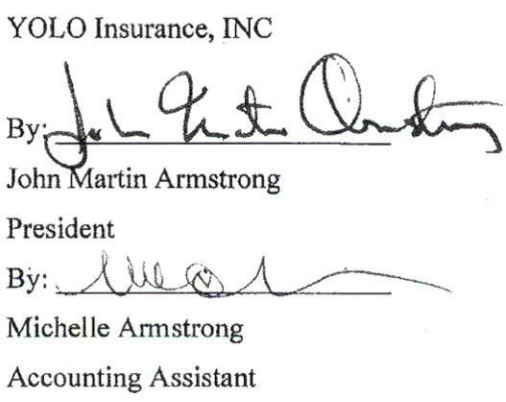 YOLO Insurance, INC
By: John Martin Armstrong
John Martin Armstrong
President
By:
Michelle Armstrong
Accounting Assistant